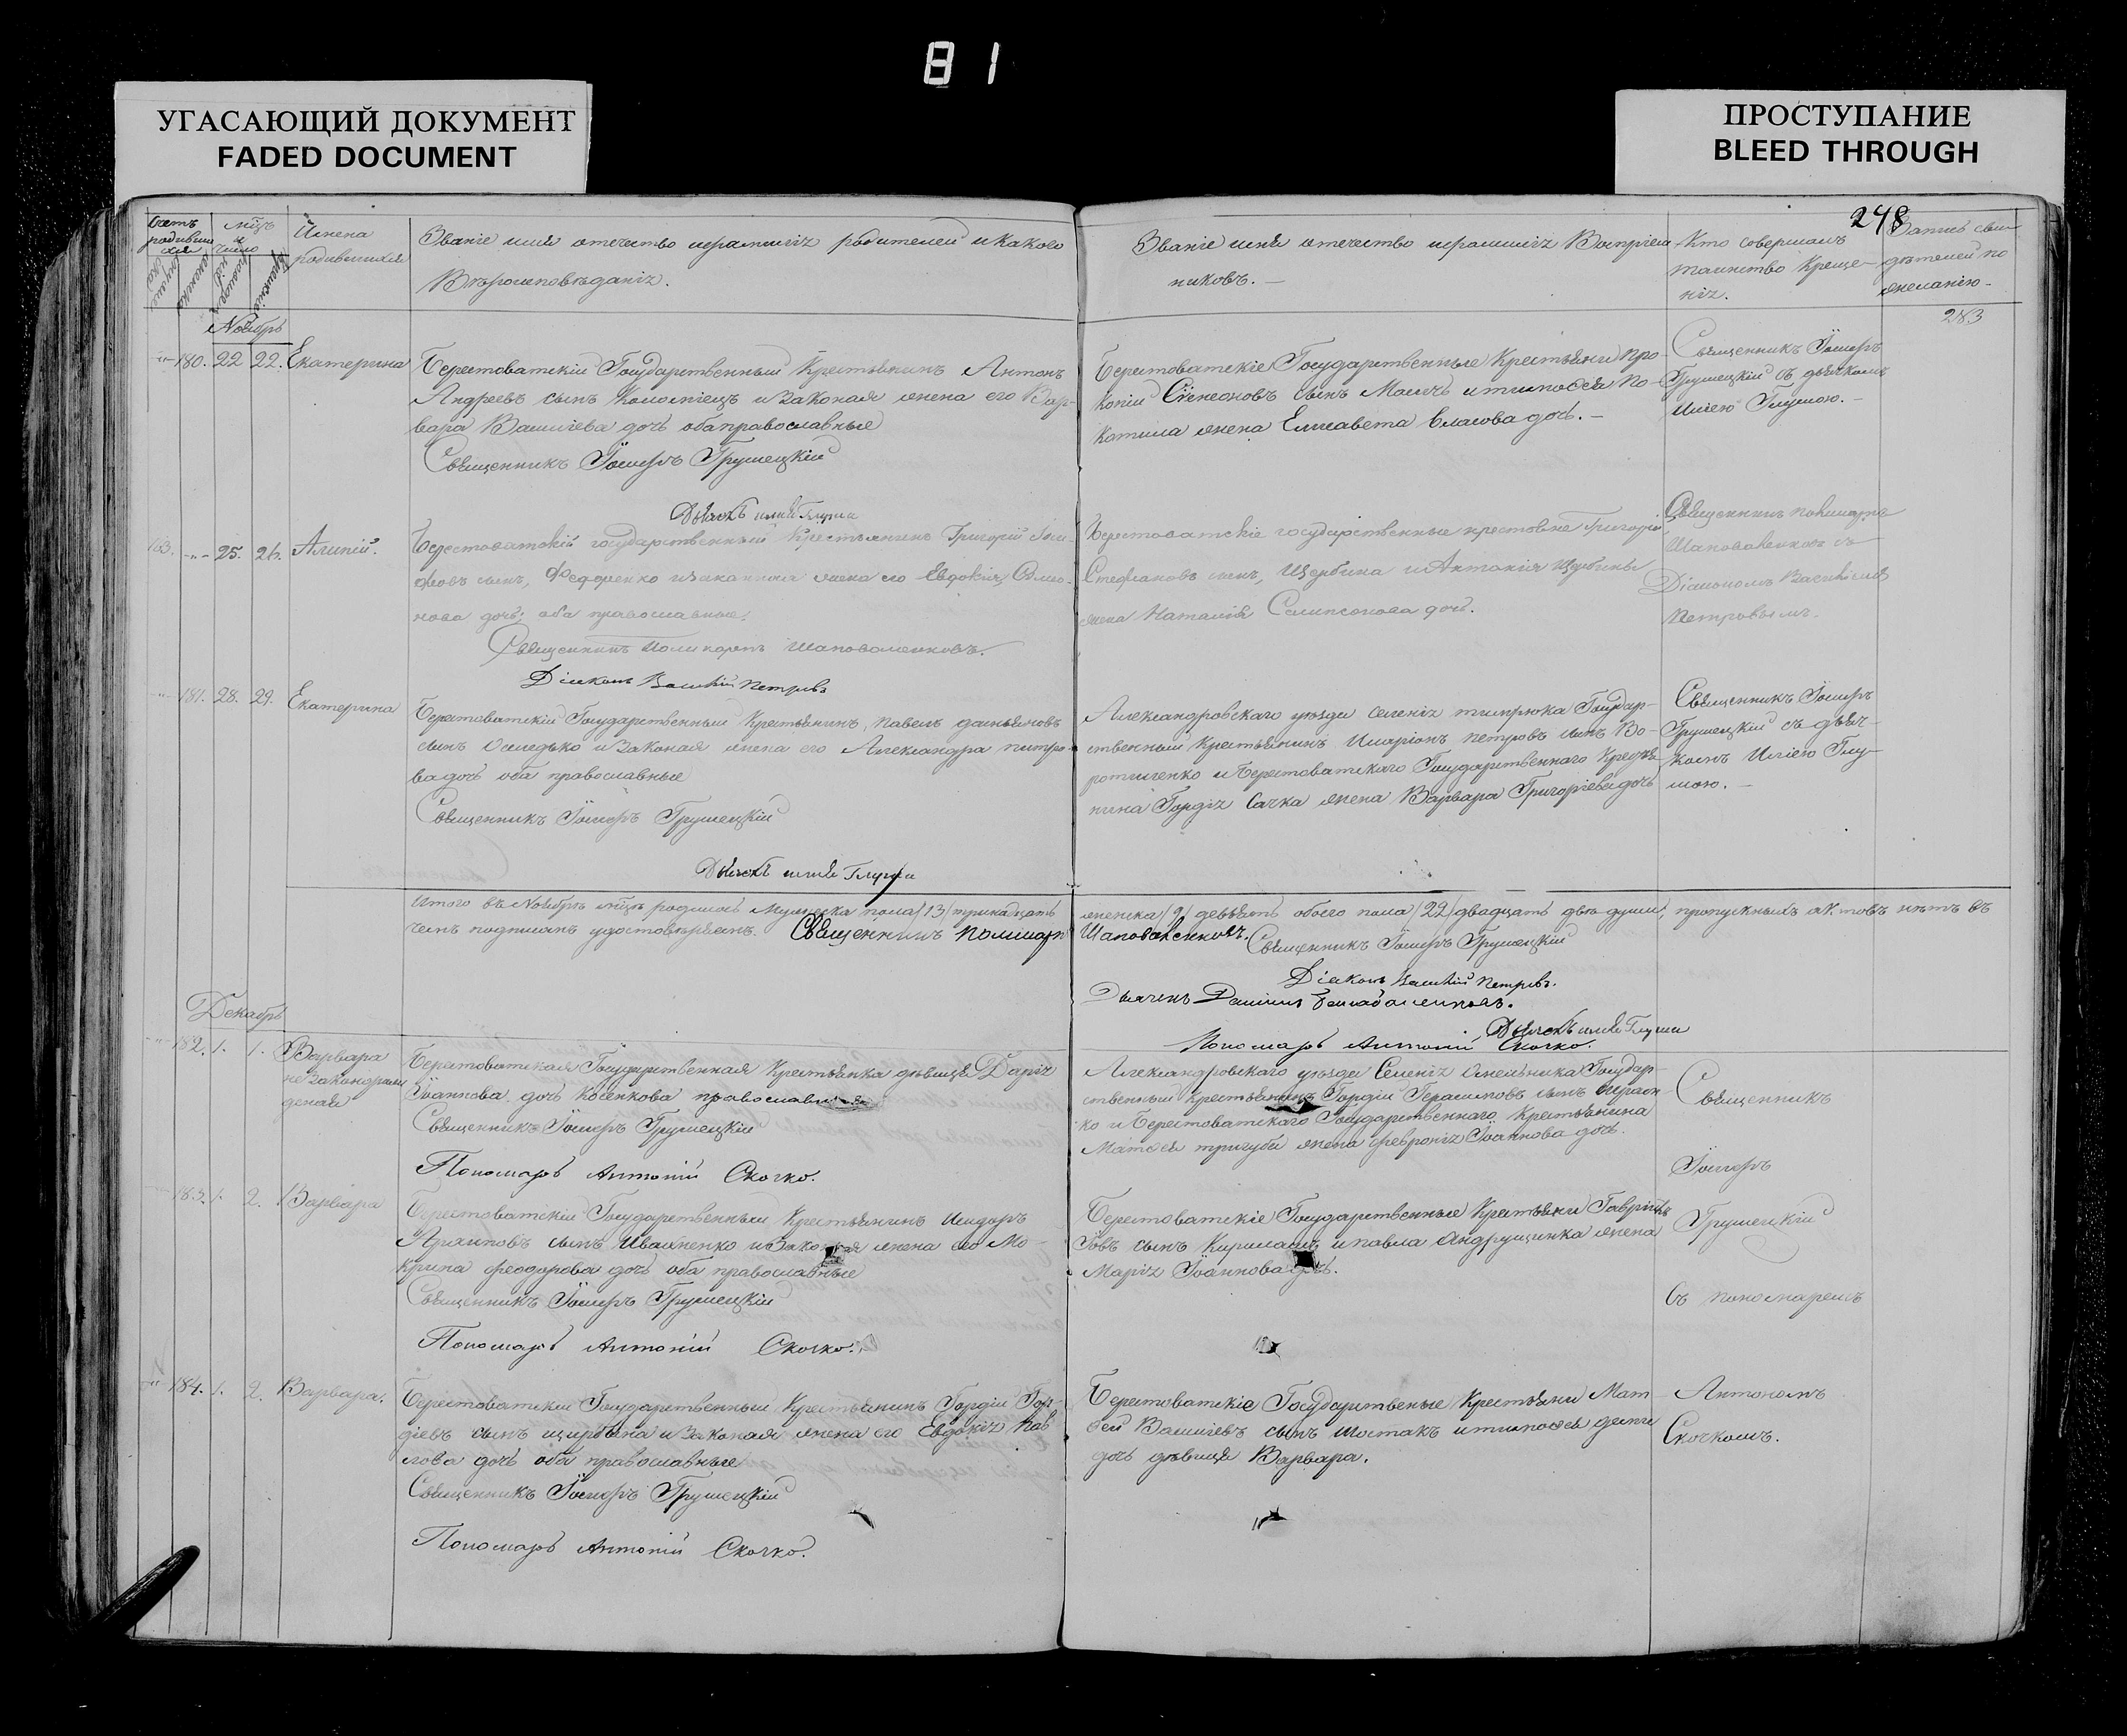 81
УГАСАЮЩИЙ ДОКУМЕНТ
FADED DOCUMENT
ПРОСТУПАНИЕ
BLEED THROUGH
248
Счетъ родивши
мѣсъ и число
Имена родившихся
Званіе имя отечество ифамиліz родителей икакого
Вѣроисповѣданіz.
Званіе имя отечество ифамиліz Воспріем
никовъ. —
Кто совершалъ
таинство Креще-
ніz.
Запись сви-
дѣтелей по
желанію.
283
Ноябрь
180. 22 22. Екатерина
Берестоватскій Государственный Крестьянинъ Антонъ
Андреевъ сынъ Коломіецъ изаконая жена его Вар-
вара Василіева дочь обаправославные
Священникъ Іосифъ Грушецкій
Дьячокъ илія Глуша
Берестоватскіе Государственные Крестьяни Про-
копій Сѵмеоновъ сынъ итимофея По-
жена Елисавета Власова дочь. —
Священникъ Іосифъ
Грушецкій съ дьячкомъ
Иліею Глушою. —
163. 25. 26. Алипій.
Берестоватскій государственный крестьянинъ Григорій Іоси-
фовъ сынъ, Федоренко изаканная жена его Евдокія
нова дочь; оба православные.
Священникъ Поликарпъ Шаповаленковъ.
Діаконъ Василій Петровъ
Берестоватскіе государственные крестьяне Григорій
Стефановъ сынъ, Щербина и Антонія Щербины
жена Наталія Сампсонова дочь.
Священникъ Поликарпъ
Шаповаленковъ съ
Діакономъ Василіемъ
Петровымъ.
181. 28. 29. Екатерина
Берестоватскій Государственный Крестьянинъ павелъ даміяновъ
сынъ Оселедько изаконая жена его Александра питро-
ва дочь оба православные
Священникъ Іосифъ Грушецкій
Дьячокъ илія Глуша
Александровскаго уѣзда селеніz тимрюка Государ-
ственный крестьянинъ Иларіонъ петровъ сынъ Во-
ротиленко иБерестоватскаго Государственнаго Крестья
нина Гордіz Сачка жена Варвара Григоріевадочь
Священникъ Іосифъ
Грушецкій съ дьяч-
комъ Иліею Глу-
шою. —
Итого въ Ноябрѣ мѣсѣ родилось Мужеска пола /13/ тринадцать
женска /9/ девѣять обоего пола /22/ двадцать двѣ души, пропускныхъ актовъ нѣтъ въ
чемъ подписомъ удостовѣряемъ. Священникъ Поликарпъ
Шаповаленковъ. Священникъ Іосифъ Грушецкій
Діаконъ Василій Петровъ.
Дьячекъ Даніилъ
Дьячокъ илія Глуша
Пономарь Антоній Скочко.
Декабрь
182. 1. 1. Варвара
не законорож
деная
Берестоватская Государственная Крестьянка дѣвица Даріz
Іоаннова дочь Косенкова православная
Священникъ Іосифъ Грушецкій
Пономарь Антоній Скочко.
Александровскаго уѣзда Селеніz Государ-
ственный Крестьянинъ Гордій Герасимовъ сынъ
ко и Берестоватскаго Государственнаго Крестьянина
Матѳея тригуба жена февроніz Іоаннова дочь.
Священникъ
Іосифъ
183. 1. 2. Варвара
Берестоватскій Государственный Крестьянинъ Исидоръ
сынъ Ивахненко изаконая жена его Мо-
крина феодорова дочь оба православные
Священникъ Іосифъ Грушецкій
Пономарь Антоній Скочко.
Берестоватскіе Государственные Крестьяни Гавріилъ
Іовъ сынъ ипавла Андрущинка жена
Маріz Іоаннова дочь.
Грушецкій
съ пономаремъ
184. 1. 2. Варвара.
Берестоватскій Государственный Крестьянинъ Гордій Гор-
діевъ сынъ щирбина изаконая жена его Евдокіz Пав
лова дочь оба православные
Священникъ Іосифъ Грушецкій
Пономарь Антоній Скочко.
Берестоватскіе Государственые Крестьяни Мат
ѳей Василіевъ сынъ шостакъ итимофея
дочь дѣвица Варвара.
Антоніемъ
Скочкомъ.